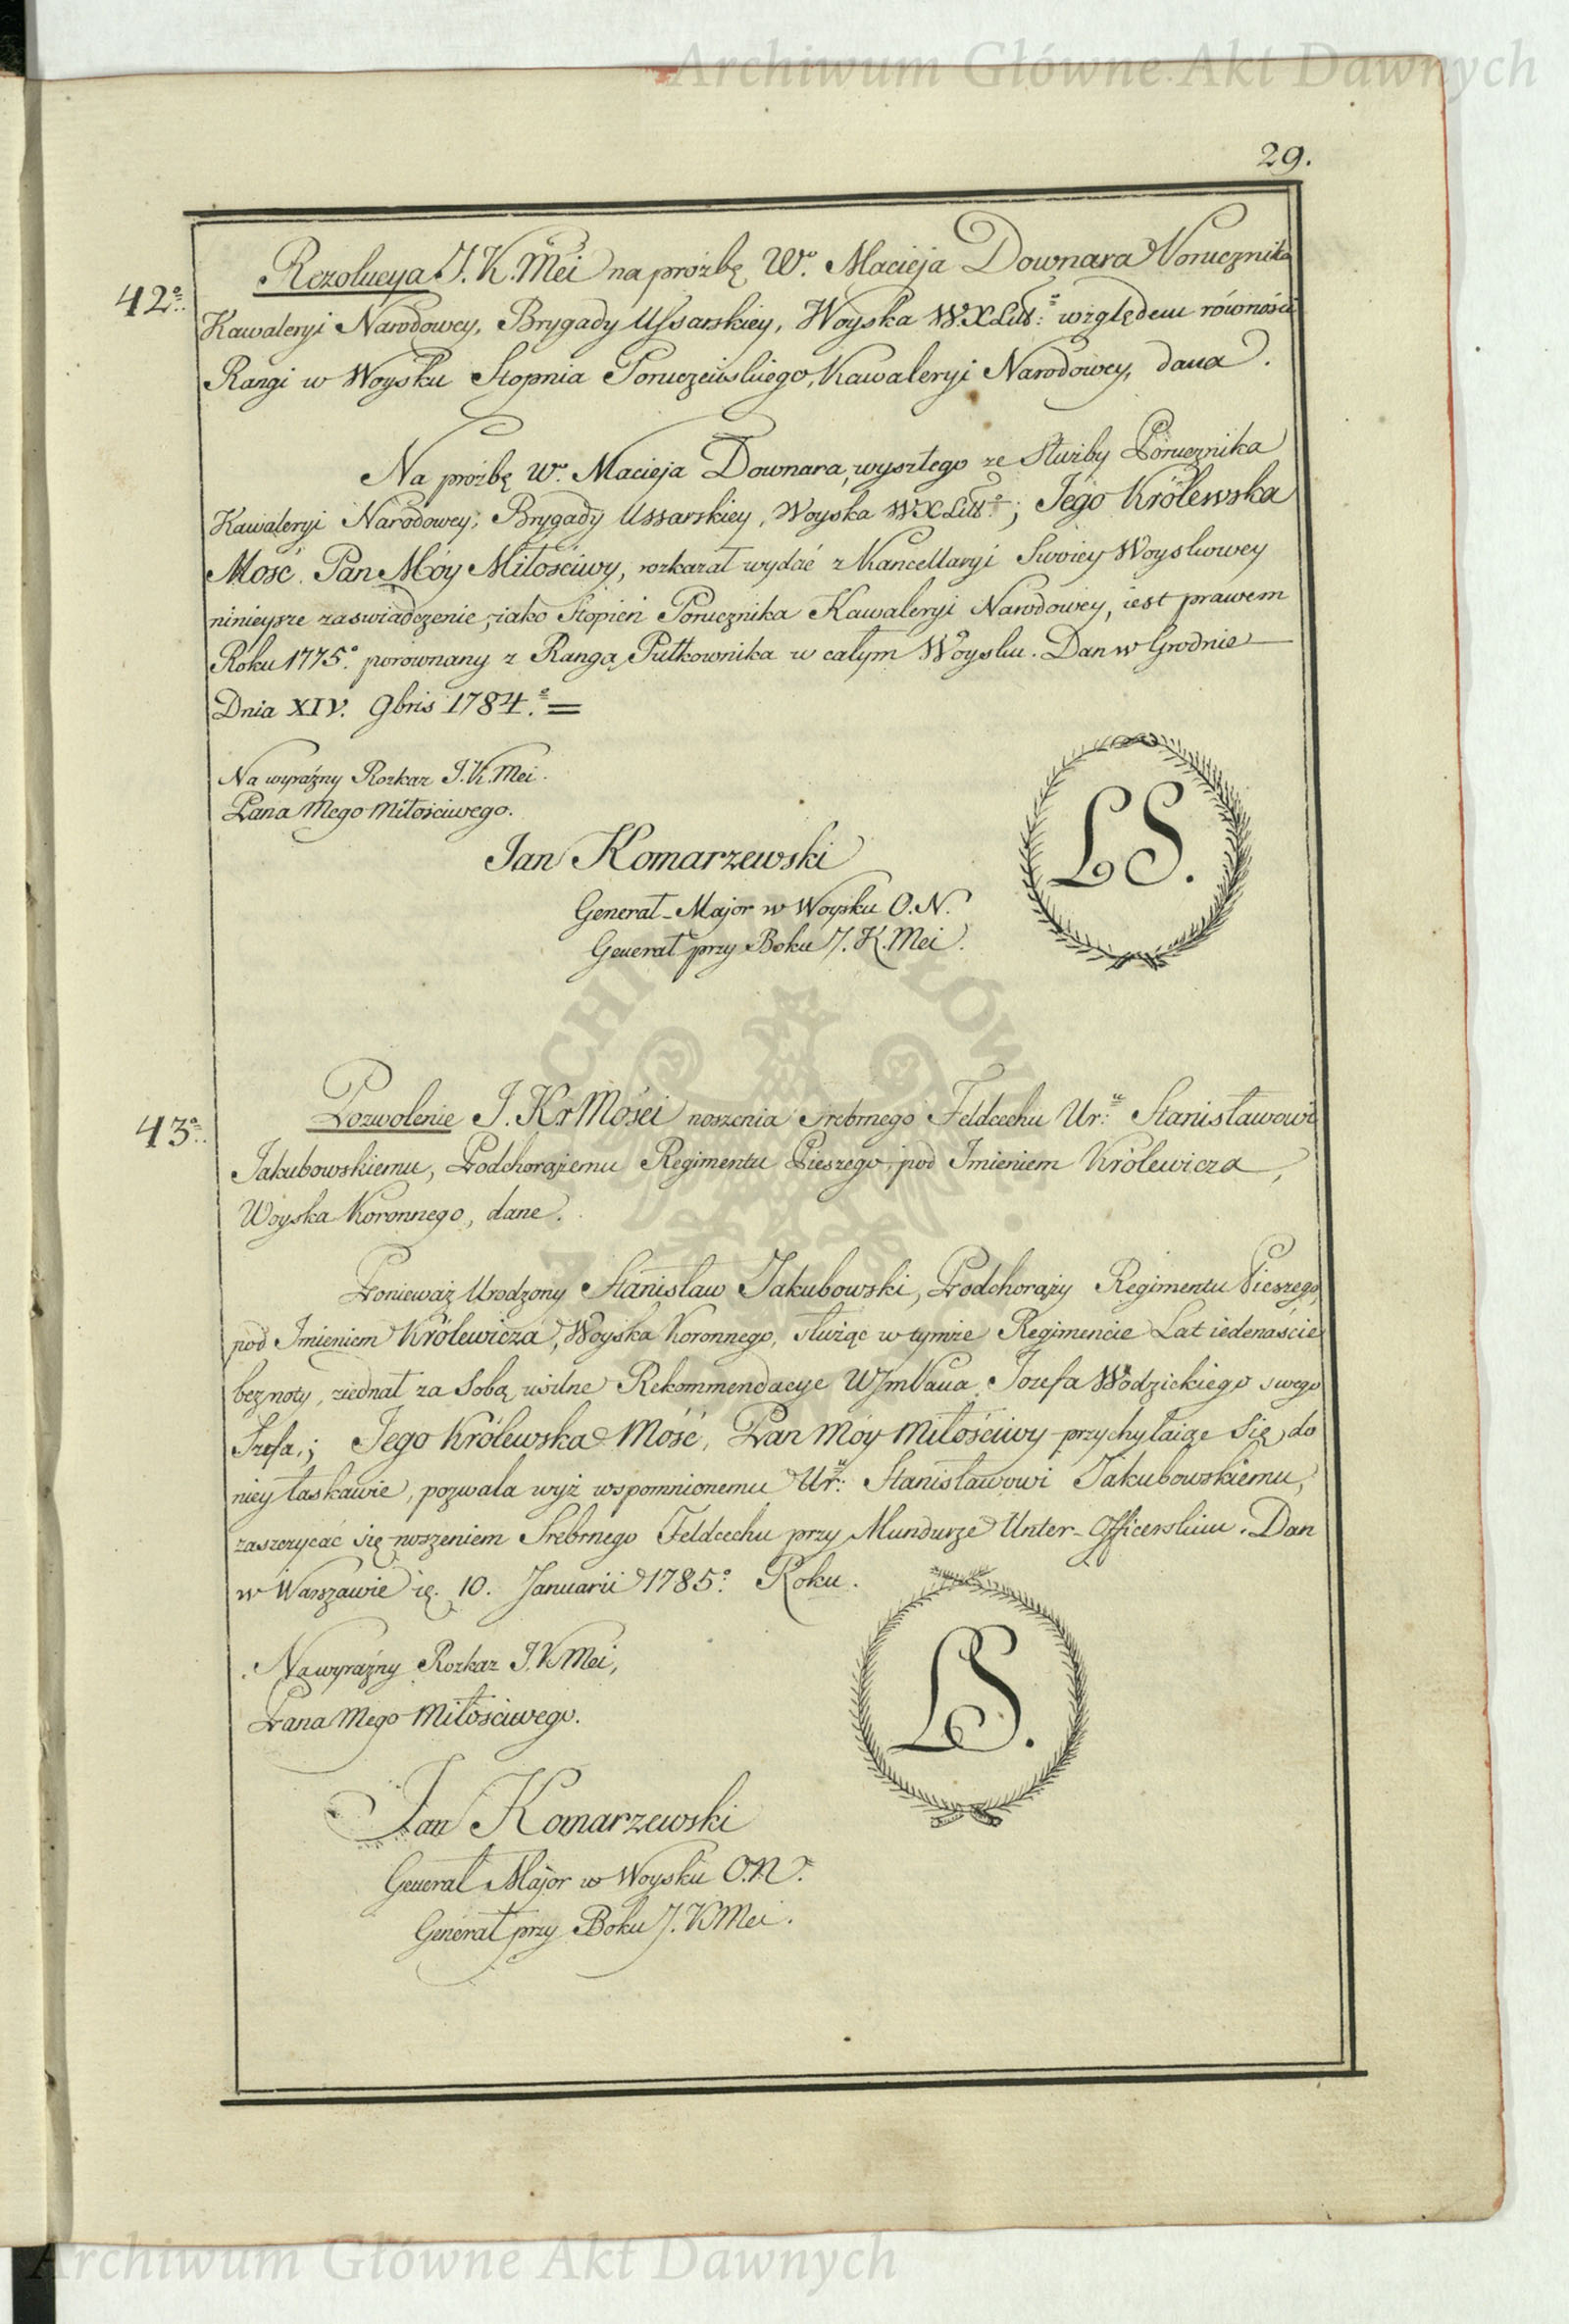 Archiwum Główne Akt Dawnych
29.
42º.
Rezolucya J. K. Mci na prozbę Wº. Macieja Downara Porucznika
Kawaleryi Narodowey, Brygady Ussarskiey, Woyska W.X.Litt: względem równości
Rangi w Woysku Stopnia Poruczeńskiego, Kawaleryi Narodowey, dana.
Na prozbę Wº. Macieja Downara, wyszłego ze Służby Porucznika
Kawaleryi Narodowey, Brygady Ussarskiey, Woyska WXLitt:; Jego Królewska
Mość. Pan Móy Miłościwy, rozkazał wydać z Kancellaryi Swoiey Woyskowey
ninieysze zaswiadczenie, iako Stopień Porucznika Kawaleryi Narodowey, iest prawem
Roku 1775º. porownany z Rangą Pułkownika w całym Woysku. Dan w Grodnie
Dnia XIV. 9bris 1784.º =
Na wyraźny Rozkaz J. K. Mci.
Pana Mego Miłościwego.
LS.
Jan Komarzewski
Generał-Major w Woysku O. N.
Generał przy Boku J. K. Mci.
43º.
Pozwolenie J. Kr Mości noszenia Srebrnego Feldcechu Ur: Stanisławowi
Jakubowskiemu, Podchorążemu Regimentu Pieszego pod Imieniem Królewicza,
Woyska Koronnego, dane.
Ponieważ Urodzony Stanisław Jakubowski, Podchorąży Regimentu Pieszego,
pod Imieniem Królewicza, Woyska Koronnego, służąc w tymże Regimencie Lat iedenaście
bez noty, ziednał za Sobą usilne Rekommendacye WJmPana Jozefa Wodzickiego swego
Szefa,; Jego Królewska Mość, Pan Móy Miłościwy przychylaiąc Się do
niey łaskawie, pozwala wyż wspomnionemu Ur: Stanisławowi Jakubowskiemu,
zaszczycać się noszeniem Srebrnego Feldcechu przy Mundurze Unter-Officerskim. Dan
w Warszawie 10. Januarii 1785º. Roku.
Na wyraźny Rozkaz J. K Mci,
Pana Mego Miłościwego.
LS.
Jan Komarzewski
Generał Major w Woysku O.N.
Generał przy Boku J. K Mci.
Archiwum Główne Akt Dawnych